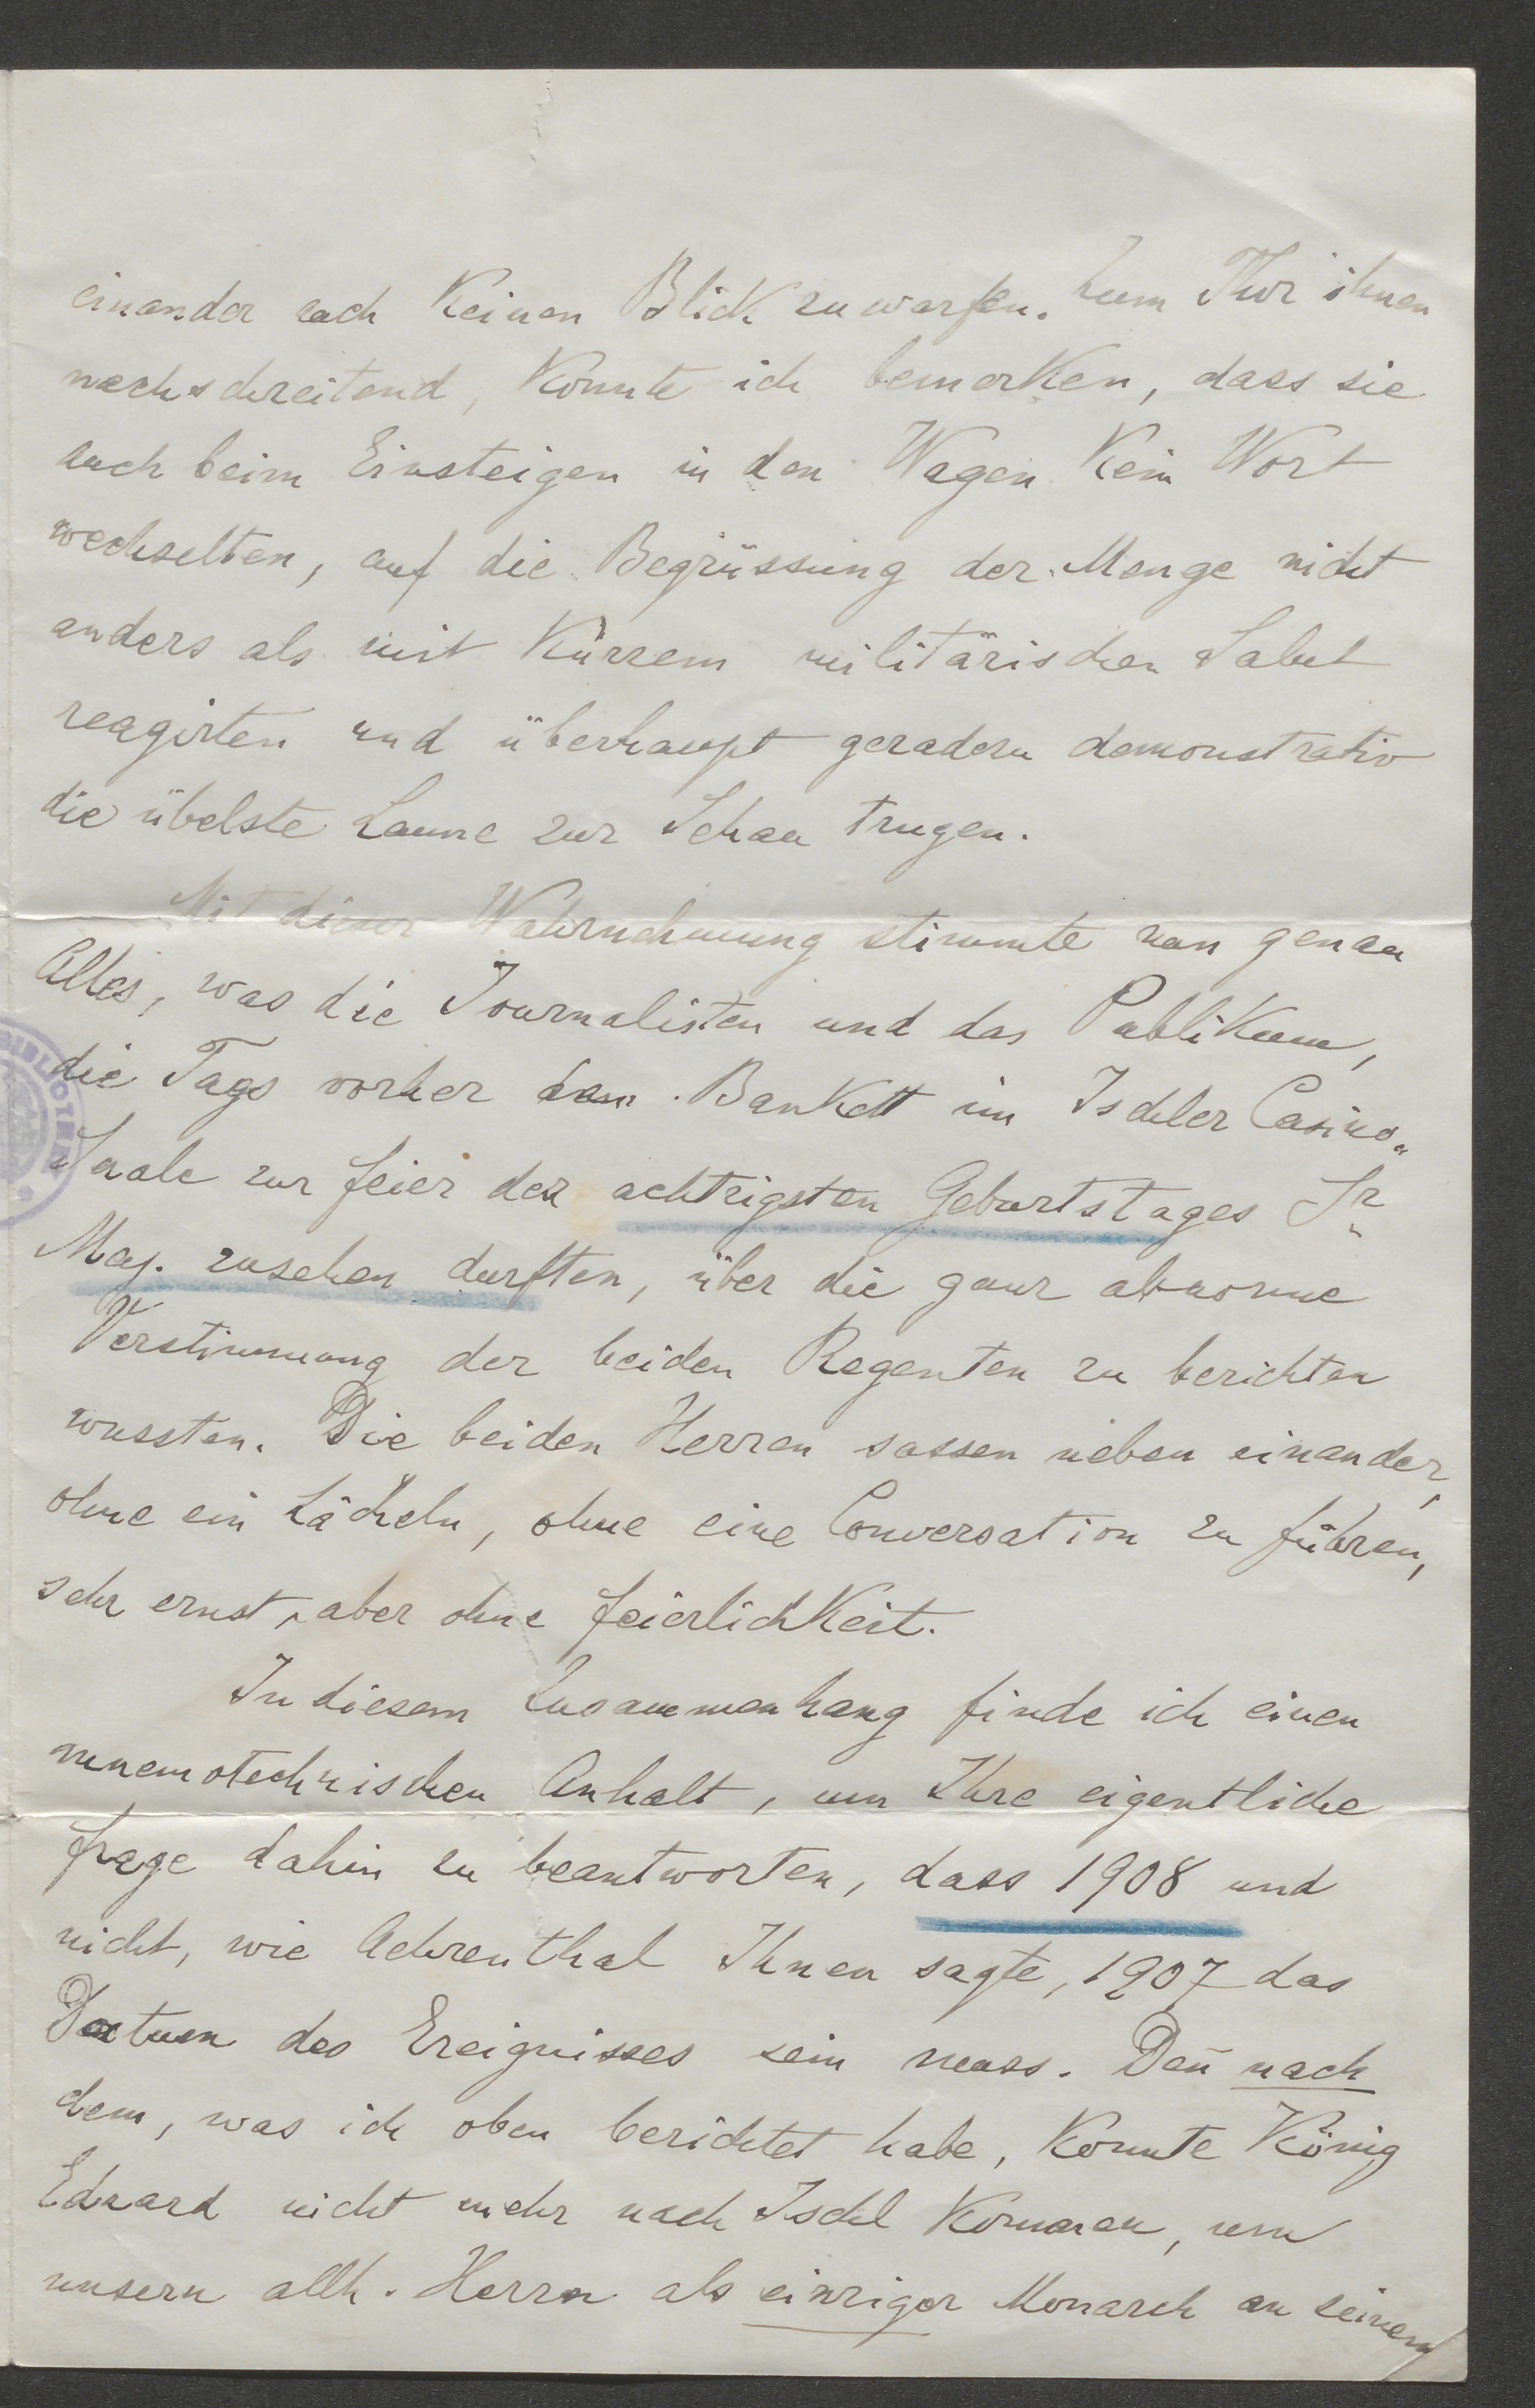 einander auch keinen Blick zuwarfen. Zum Thor ihnen
nachschreitend, konnte ich bemerken, dass sie
auch beim Einsteigen in den Wagen kein Wort
wechselten, auf die Begrüssung der Menge nicht
anders als mit kurzem militärischen Salut
reagirten und überhaupt geradezu demonstrativ
die übelste Laune zur Schau trugen.
Mit dieser Wahrnehmung stimmte nun genau
Alles, was die Journalisten und das Publikum,
die Tags vorher dem Bankett im Ischler Casino-
Saale zur Feier des achtzigsten Geburtstages Sr
Maj. zusehen durften, über die ganz abnorme
Verstimmung der beiden Regenten zu berichten
wussten. Die beiden Herren sassen neben einander,
ohne ein Lächeln, ohne eine Conversation zu führen,
sehr ernst, aber ohne Feierlichkeit.
In diesem Zusammenhang finde ich einen
mnemotechnischen Anhalt, um Ihre eigentliche
Frage dahin zu beantworten, dass 1908 und
nicht, wie Aehrenthal Ihnen sagte, 1907 das
Datum des Ereignisses sein muss. Den̅ nach
dem, was ich oben berichtet habe, konnte König
Eduard nicht mehr nach Ischl kommen, um
unsern allh. Herrn als einziger Monarch an seinem